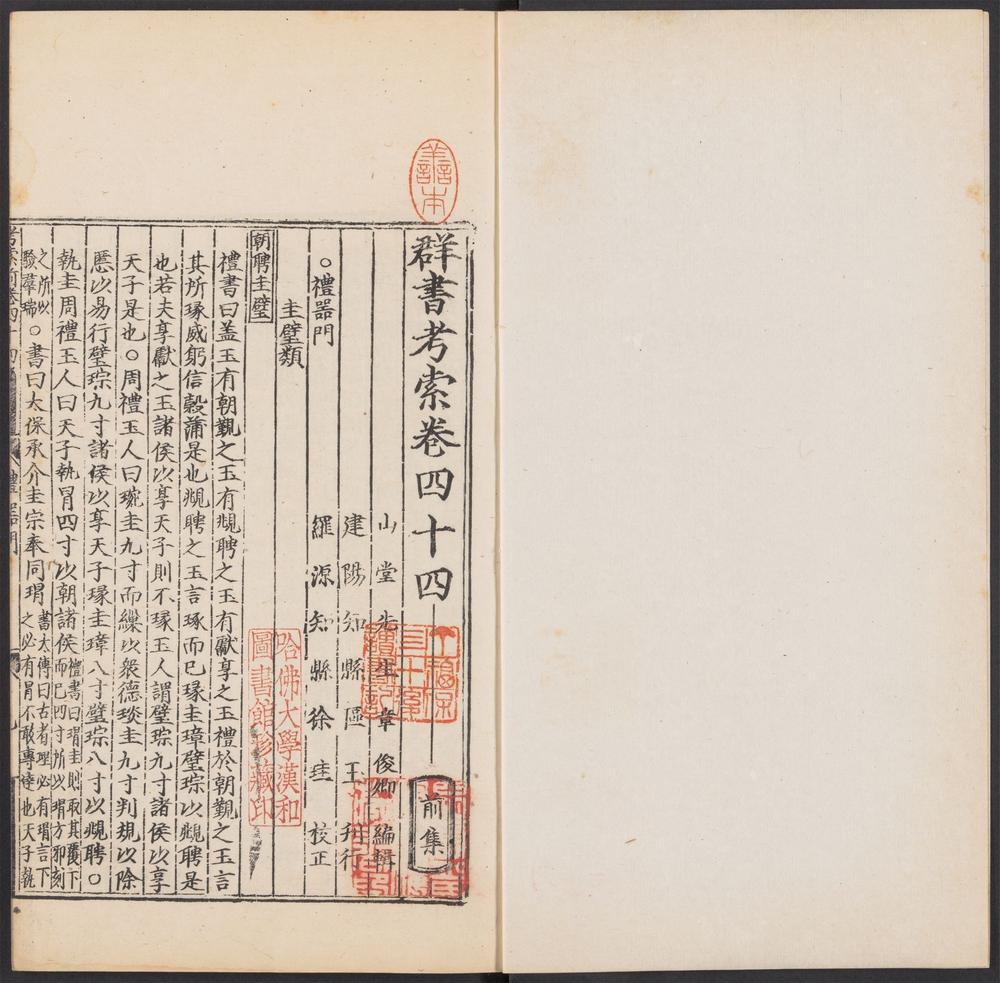 善本
群書考索卷四十四
前集
山堂先生章俊卿編輯
建陽知縣區玉刊行
羅源知縣徐珪校正
○禮器門
圭璧類
朝聘圭璧
禮書曰盖玉有朝覲之玉有覜聘之玉有獻享之玉禮於朝覲之玉言
其所瑑威躬信穀蒲是也覜聘之玉言瑑而已瑑圭璋璧琮以覜聘是
也若夫享獻之玉諸侯以享天子則不瑑玉人謂璧琮九寸諸侯以享
天子是也○周禮玉人曰琬圭九寸而繅以象德琰圭九寸判規以除
慝以易行璧琮九寸諸侯以享天子瑑圭璋八寸璧琮八寸以覜聘○
執圭周禮玉人曰天子執冒四寸以朝諸侯
禮書曰瑁圭則取其覆下
而已四寸所以瑁方邪刻
之所以
驗羣瑞
○書曰太保承介圭宗奉同瑁
書大傳曰古者圭必有瑁言下
之必有冒不敢專達也天子執
禮器門
哈佛大學漢和
圖書館珍藏印